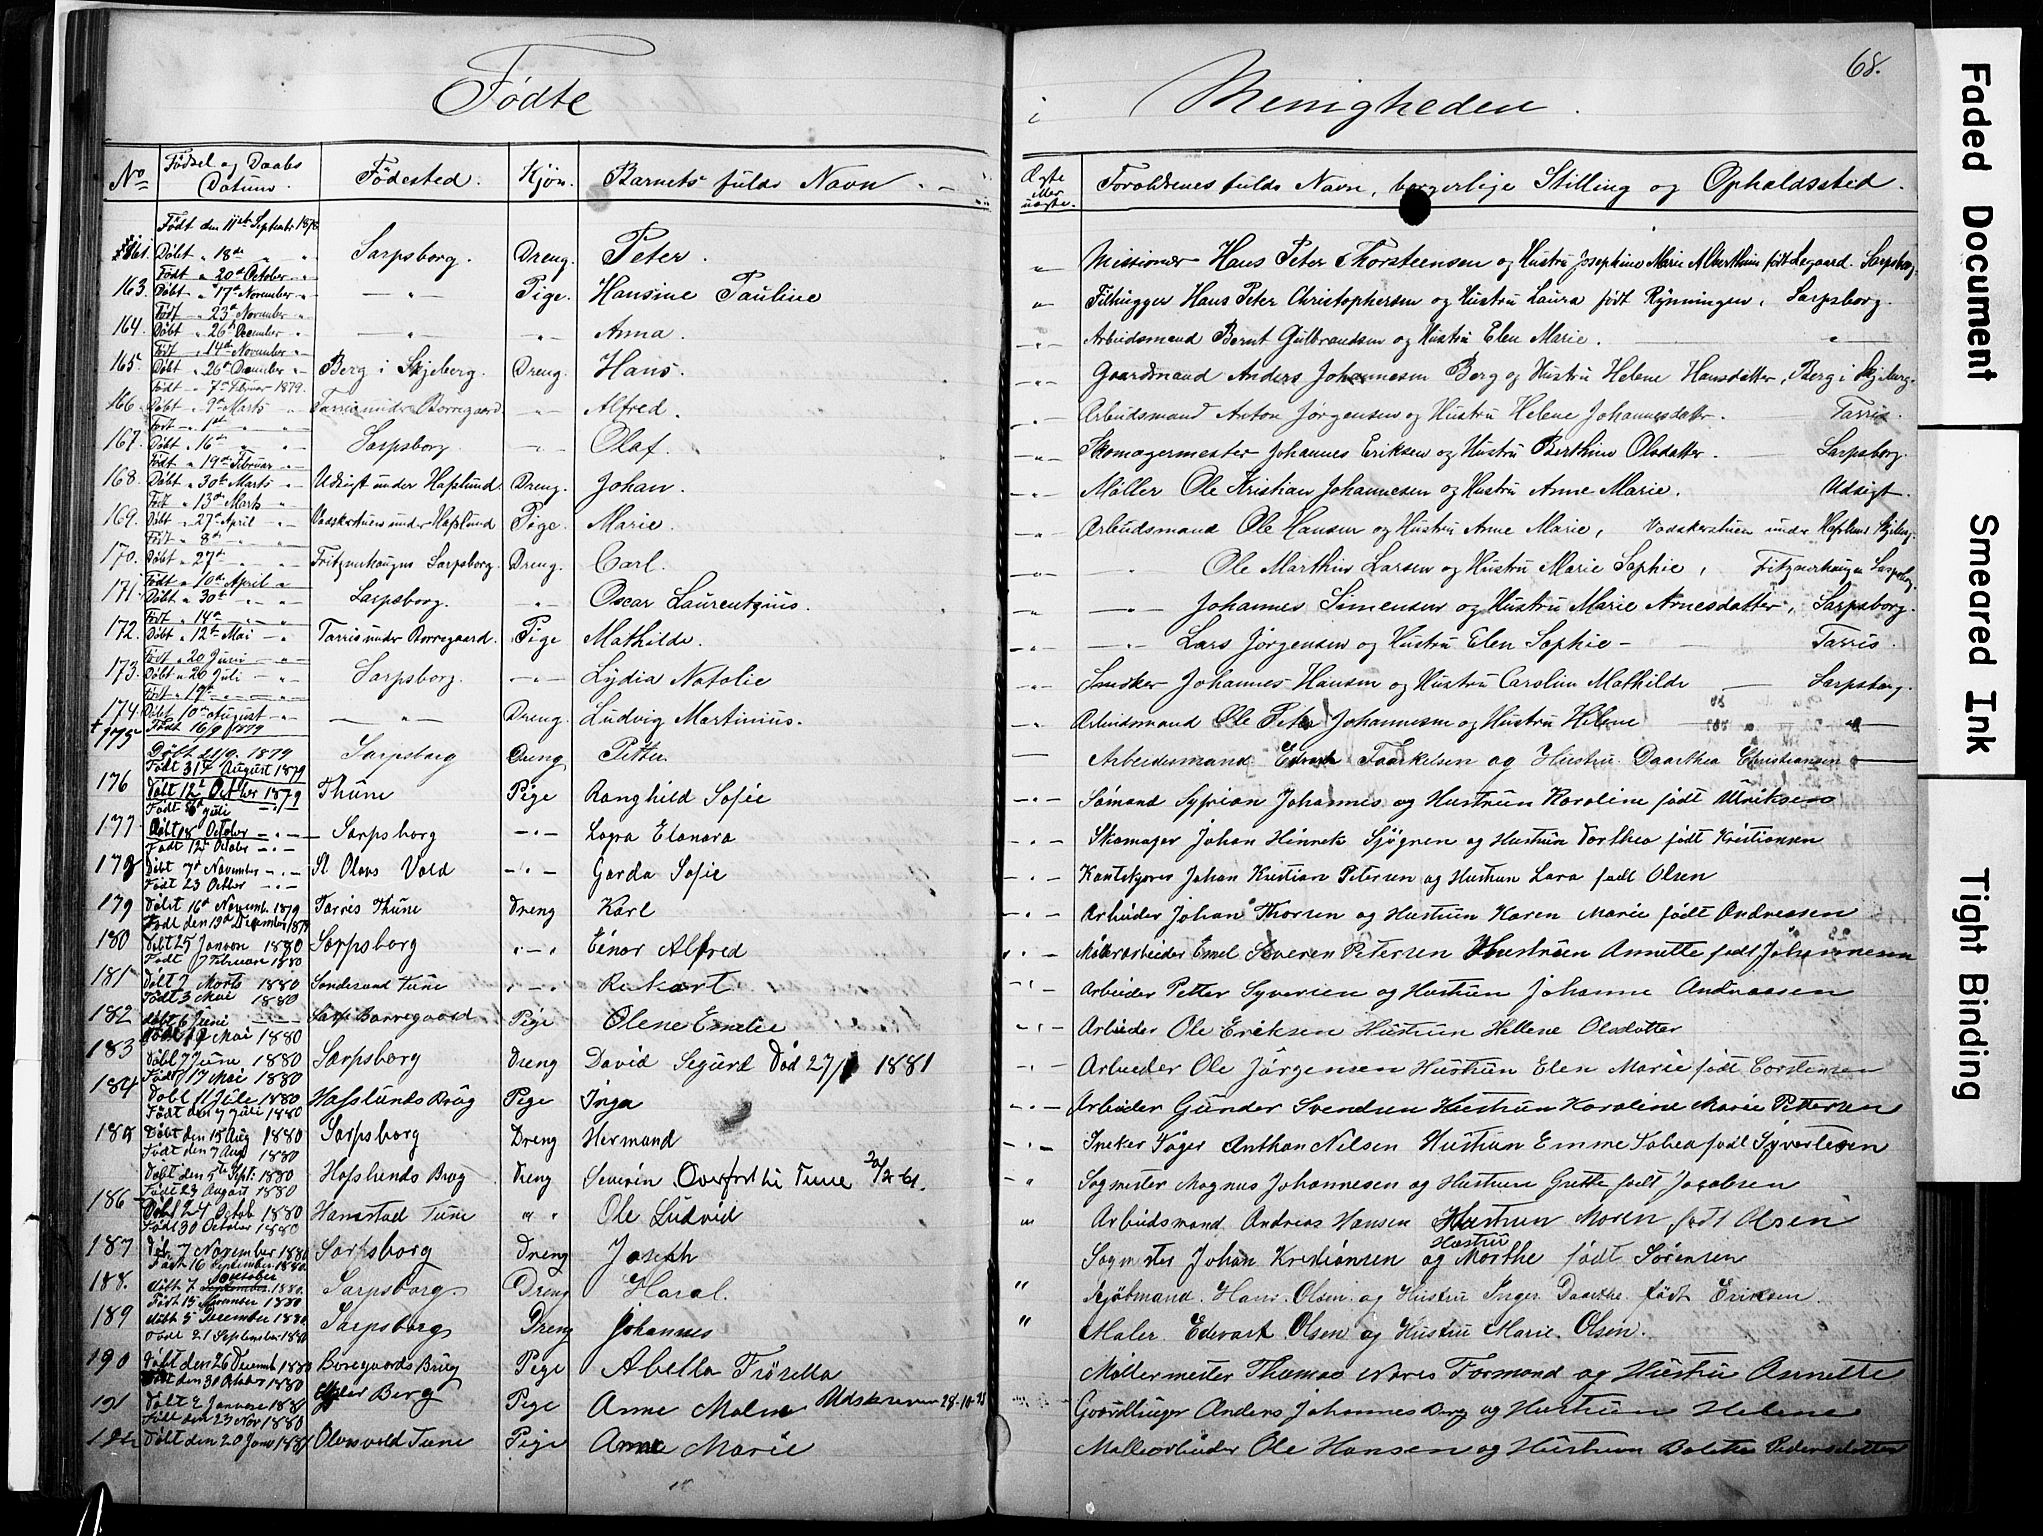 Fødte
i Menigheden.
68.
No Fødsel og Daabs Datum. Fødested. Kjøn. Barnets fulde Navn. Ægte eller uægte. Forældrenes fulde Navn, borgerlige Stilling og Opholdssted.
Født den 11te Septembr 1878
Døbt " 18de " " Sarpsborg. Dreng. Peter. " Missionær Hans Peter Thorsteensen og Hustru Josephine Marie Alberthine født Sarpsborg.
Født " 20de October "
163. Døbt " 17de November " — " — Pige. Hansine Pauline " Filhugger Hans Peter Christophersen og Hustru Laura født Rynningen, Sarpsborg.
Født " 23de November "
164. Døbt " 26de December " — " — " Anna. " Arbeidsmand Bernt Gulbrandsen og Hustru Elen Marie. — " —
Født " 14de November "
165. Døbt " 26de December " Berg i Skjeberg. Dreng. Hans. " Gaardmand Anders Johannesen Berg og Hustru Helene Hansdatter, Berg i Skjeberg.
Født " 7de Februar 1879.
166. Døbt " 9de Marts " Tarris under Borregaard. " Alfred. " Arbeidsmand Anton Jørgensen og Hustru Helene Johannesdatter. Tarris.
Født " 1ste " "
167. Døbt " 16de " " Sarpsborg. " Olaf. " Skomagermester Johannes Eriksen og Hustru Berthine Olsdatter. Sarpsborg.
Født " 19de Februar "
168. Døbt " 30te Marts " Udsigt under Hafslund. Dreng. Johan. " Møller Ole Kristian Johannesen og Hustru Anne Marie. Udsigt.
Født " 13de Marts "
169. Døbt " 27de April " under Hafslund Pige. Marie. " Arbeidsmand Ole Hansen og Hustru Anne Marie, under Hafslund Skjeberg.
Født " 8de " "
170. Døbt " 27de " " Sarpsborg. Dreng. Carl. " — " — Ole Marthin Larsen og Hustru Marie Sophie, Sarpsborg
Født " 10de April "
171. Døbt " 30te " " Sarpsborg. " Oscar Laurentzius. " — " — Johannes Simensen og Hustru Marie Arnesdatter, Sarpsborg.
Født " 14de " "
172. Døbt " 12te Mai " Tarris under Borregaard. Pige Mathilde. " — " — Lars Jørgensen og Hustru Elen Sophie — Tarris.
Født " 20 Juni "
173. Døbt " 20 Juli " Sarpsborg. " Lydia Natalie " Snedker Johannes Hansen og Hustru Caroline Mathilde Sarpsborg.
Født " 19de " "
174. Døbt " 10de August " — " — Dreng. Ludvig Martinius. " Arbeidsmand Ole Peter Johannesen og Hustru Helene — " —
Født 16/9 1879
175 Døbt 21/9. 1879 Sarpsborg Dreng Petter — Arbeidesmand Edvard Taarkelsen og Hustru Daarthea Christiansen
Født 31te August 1879
176 Døbt 12te Octber 1879 Thune Pige Ranghild Sofie — " — Sømand Syprian Johannis og Hustrun Karoline født Ulriksen
Født juli — " —
177 Døbt 8de October — " — Sarpsborg — " — Lovra Elanora — " — Skomager Johan Hinnek Sjøgren og Hustrun Dorthea født Kristiansen
Født 12te October — " —
178 Døbt 7de November — " — St Olavs Vold — " — Garda Sofie — " — Johan Kristian Petersen og Hustrun Lara født Olsen
Født 23 Octber — " —
179 Døbt 16de Novemb. 1879 Tarris Thune Dreng Karl — " — Arbeider Johan Thorsen og Hustrun Karen Marie født Andreassen
Født den 19de December 1879
180 Døbt 25 Januar 1880 Sarpsborg " — " Einar Alfred " . — Møllerarbeider Emel Severen Petersen Hustruen Annette født Johannesen
Født 7 Februar 1880
181 Døbt 7 Marts 1880 Sondesund Tune " — " Rekart — " — Arbeider Petter Syversen og Hustrun Johanne Andreassen
Født 3 Mai 1880
182 døbt 6 Juni — Borregaard Pige Olene Emelie — " — Arbieder Ole Eriksen Hustrun Hellene Olsdatter
Født Mai 1880
183 Døbt 7 June 1880 Sarpsborg Dreng David Segurd Død 27/ 1881 — " — Arbieder Ole Jørgensen Hustrun Elen Marie født Torstensen
Født 17 Mai 1880
184 Døbt 11 Jule 1880 Hafslunds Brug Pige Inga — " — Arbieder Gunder Svendsen Hustrun Karoline Marie Pettersen
Født den 7 juli 1880
185 Døbt den 15 Aug 1880 Sarpsborg Dreng Hermand — " — Anthon Nilsen Hustrun Emme født Syvertesen
Født den 7 Aug 1880
Døbt den 5te Sept: 1880 Hafslunds Brug Dreng Severin Overført til Tune — " Sagmester Magnus Johannesen og Hustrun Grette født Jacobsen
Født 23 August 1880
186 Døbt 24 Octob 1880 Hannestad Tune " " Ole Ludvid " Arbeidsmand Andreas Hansen Hustrun Maren født Olsen
Født 30 October 1880
187 Døb 7 November 1880 Sarpsborg Dreng Joseph Sagmester Johan Krestiansen og Hustru Marthe født Sørensen
Født 16 September 1880
188. døbt 7 October 1880. Sarpsborg Dreng Haral. " Kjøbmand. Hans. Olsen. og Hustru Inger Daarthe født Eriksen.
Født 15 November 1880
189 døbt 5 December 1880 Sarpsborg Dreng Johannes " Maler. Edevart Olsen og Hustru Marie. Olsen.
Født 21 September 1880
190 Døbt den 26 Decemb 1880 Boregaards Brug Pige Abella Frøsella Møllermester Thomas Formand og Hustru Annette
Født den 30 October 1880
191 Døbt 2 Januar 1881 Berg Pige Anne Malen Udskreven 28-10- Anders Johannes Berg og Hustrun Helene
Født den 23 Nov 1880
Døbt den 20 Janu 1881 Olavsvold Tune Pige Anne Marie Møllearbeider Ole Hansen og Hustrun Pedersdatter
Faded Document
Smeared Ink
Tight Binding